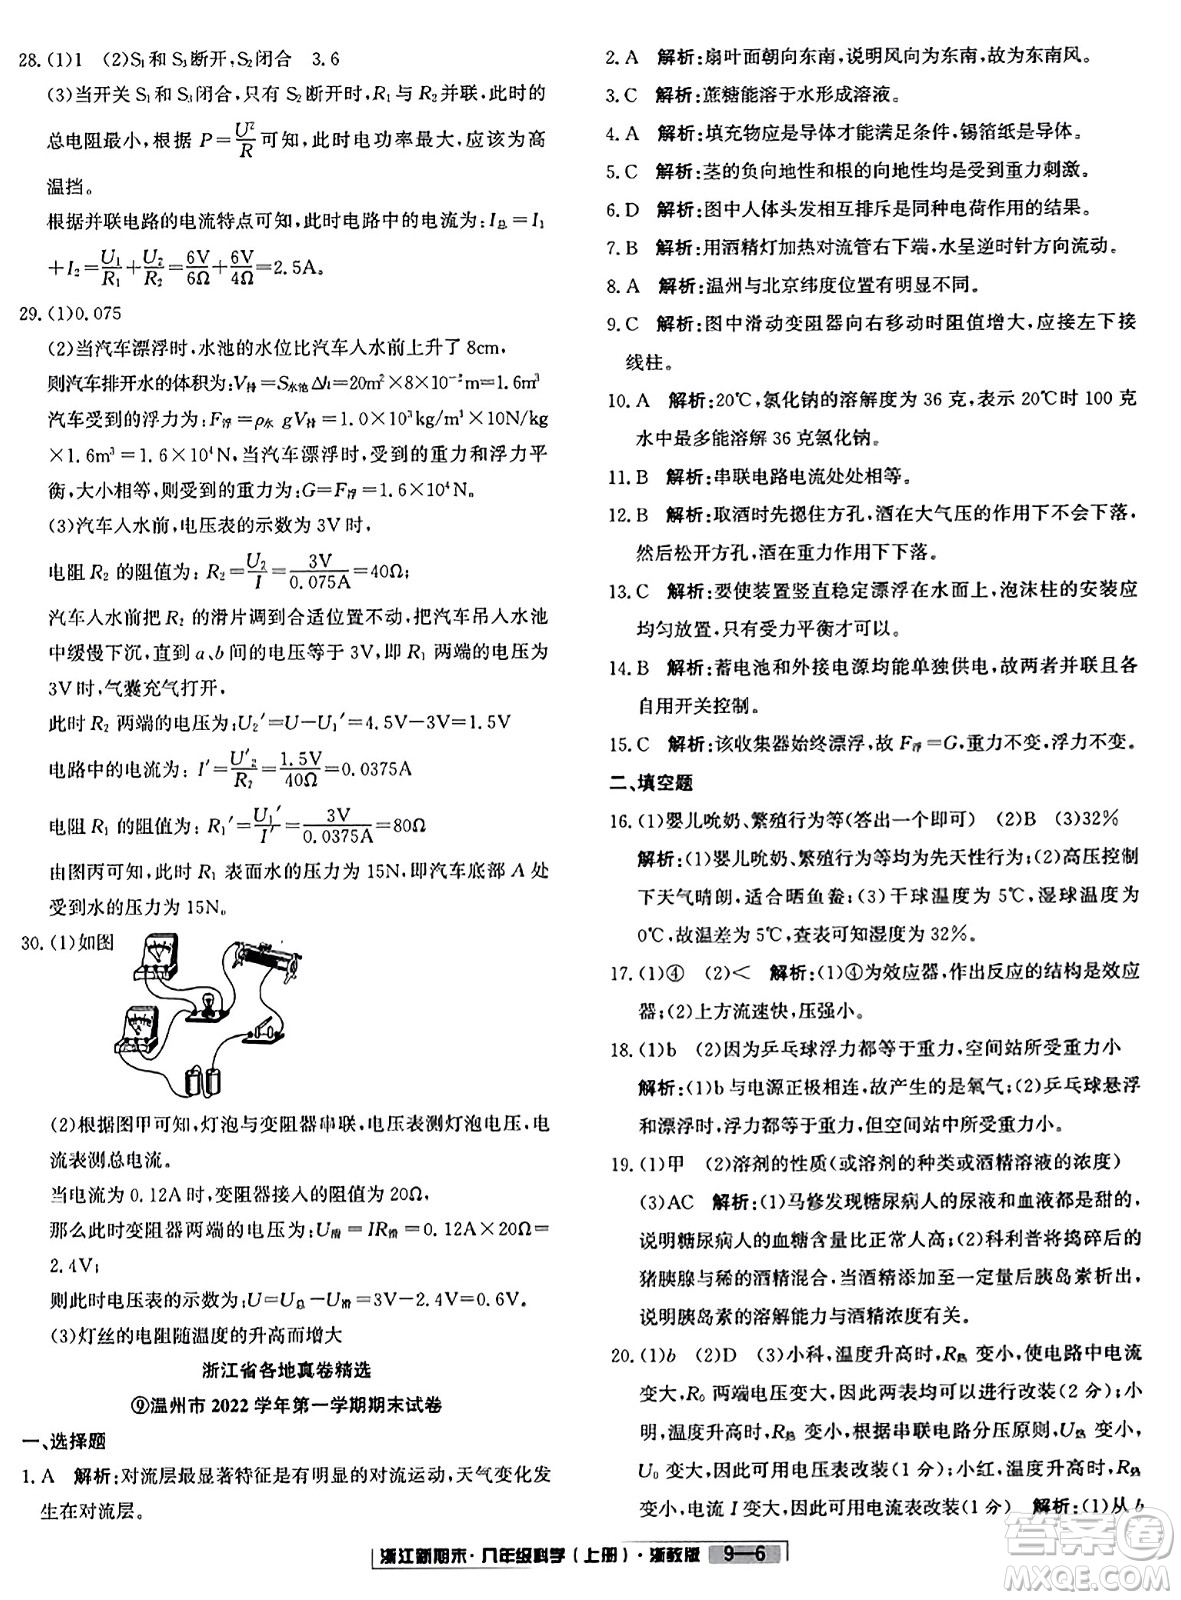 28. (1)1　(2)S₁和S₃断开,S₂闭合　3.6
(3)当开关 S₁ 和 S₃ 闭合,只有 S₂ 断开时,R₁ 与 R₂ 并联,此时的
总电阻最小,根据 P=U²/R 可知,此时电功率最大,应该为高
温挡。
根据并联电路的电流特点可知,此时电路中的电流为:I总=I₁
+I₂=U₁/R₁+U₂/R₂=6V/6Ω+6V/4Ω=2.5A。
29. (1)0.075
(2)当汽车漂浮时,水池的水位比汽车入水前上升了8cm,
则汽车排开水的体积为:V排=S水池Δh=20m²×8×10⁻²m=1.6m³
汽车受到的浮力为:F浮=ρ水 gV排=1.0×10³kg/m³×10N/kg
×1.6m³=1.6×10⁴N,当汽车漂浮时,受到的重力和浮力平
衡,大小相等,则受到的重力为:G=F浮=1.6×10⁴N。
(3)汽车入水前,电压表的示数为 3V 时,
电阻 R₂ 的阻值为:R₂=U₂/I=3V/0.075A=40Ω;
汽车入水前 R₂ 的滑片调到合适位置不动,把汽车吊入水池
中缓慢下沉,直到 a、b 间的电压等于 3V,即 R₁ 两端的电压为
3V时,气囊充气打开,
此时 R₂ 两端的电压为:U₂′=U-U₁′=4.5V-3V=1.5V
电路中的电流为:I′=U′₂/R₂=1.5V/40Ω=0.0375A
电阻 R₁ 的阻值为:R₁′=U₁′/I′=3V/0.0375A=80Ω
由图丙可知,此时 R₁ 表面受到水的压力为15N,即汽车底部 A 处
受到水的压力为15N。
30. (1)如图
(2)根据图甲可知,灯泡与变阻器串联,电压表测灯泡电压,电
流表测总电流。
当电流为0.12A时,变阻器接入的阻值为20Ω,
那么此时变阻器两端的电压为:U滑=IR滑=0.12A×20Ω=
2.4V;
则此时电压表的示数为:U=U总-U滑=3V-2.4V=0.6V。
(3)灯丝的电阻随温度的升高而增大
浙江省各地真卷精选
⑨温州市 2022 学年第一学期期末试卷
一、选择题
1. A　解析:对流层最显著特征是有明显的对流运动,天气变化发
生在对流层。
2. A　解析:扇叶面朝向东南,说明风向为东南,为东南风。
3. C　解析:蔗糖能溶于水形成溶液。
4. A　解析:填充物应是导体才能满足条件,锡箔纸是导体。
5. C　解析:茎的负向地性和根的向地性均是受到重力刺激。
6. D　解析:图中人体头发相互排斥是同种电荷作用的结果。
7. B　解析:用酒精灯加热对流管右下端,水呈逆时针方向流动。
8. A　解析:温州与北京纬度位置有明显差异。
9. C　解析:图中滑动变阻器向右移动时阻值增大,应接左下接
线柱。
10. A　解析:20℃,氯化钠的溶解度为 36 克,表示 20℃时 100 克
水中最多能溶解 36 克氯化钠。
11. B　解析:串联电路电流处处相等。
12. B　解析:取酒时先摁住方孔,酒在大气压的作用下不会下落,
然后松开方孔,酒在重力作用下下落。
13. C　解析:要使装置竖直稳定漂浮在水面上,泡沫柱的安装应
均匀放置,只有受力平衡才可以。
14. B　解析:蓄电池和外接电源均能单独供电,故两者并联且各
自用开关控制。
15. C　解析:该收集器始终漂浮,故 F浮=G,重力不变,浮力不变。
二、填空题
16. (1)婴儿吮奶、繁殖行为等(答出一个即可)　(2)B　(3)32%
解析:(1)婴儿吮奶、繁殖行为等均为先天性行为;(2)高压控制
下天气晴朗,适合晒鱼鲞;(3)干球温度为5℃,湿球温度为
0℃,故温差为5℃,查表可知湿度为 32%。
17. (1)④　(2)<　解析:(1)④为效应器,作出反应的结构是效应
器;(2)上方流速快,压强小。
18. (1)b　(2)因为乒乓球浮力都等于重力,空间站所受重力小
解析:(1)b与电源正极相连,故产生的是氧气;(2)乒乓球悬浮
和漂浮时,浮力都等于重力,故空间站中所受浮力小。
19. (1)甲　(2)溶剂的性质(或溶剂的种类或酒精溶液的浓度)
(3)AC　解析:(1)马修发现糖尿病人的尿液和血液都是甜的,
说明糖尿病人的血糖含量比正常人高;(2)科利普将捣碎后的
猪胰腺与稀的酒精混合,当酒精增加至一定量后胰岛素析出,
说明胰岛素的溶解能力与酒精浓度有关。
20. (1)b　(2)D　(3)小科,温度升高,R热 变小,使电路中电流
变大,R₀ 两端电压变大,因此不能进行改装(2分);小明,温度
升高,R热 变小,根据串联电路分压原则,U热 变小,
U₀ 变大,因此可用电压表改装(1分);小红,温度升高,R热
变小,电流 I 变大,因此可用电流表改装(1分)　解析:(1)从 b
浙江新期末·八年级科学(上册)·浙教版　9—6
答案圈
MXQE.COM